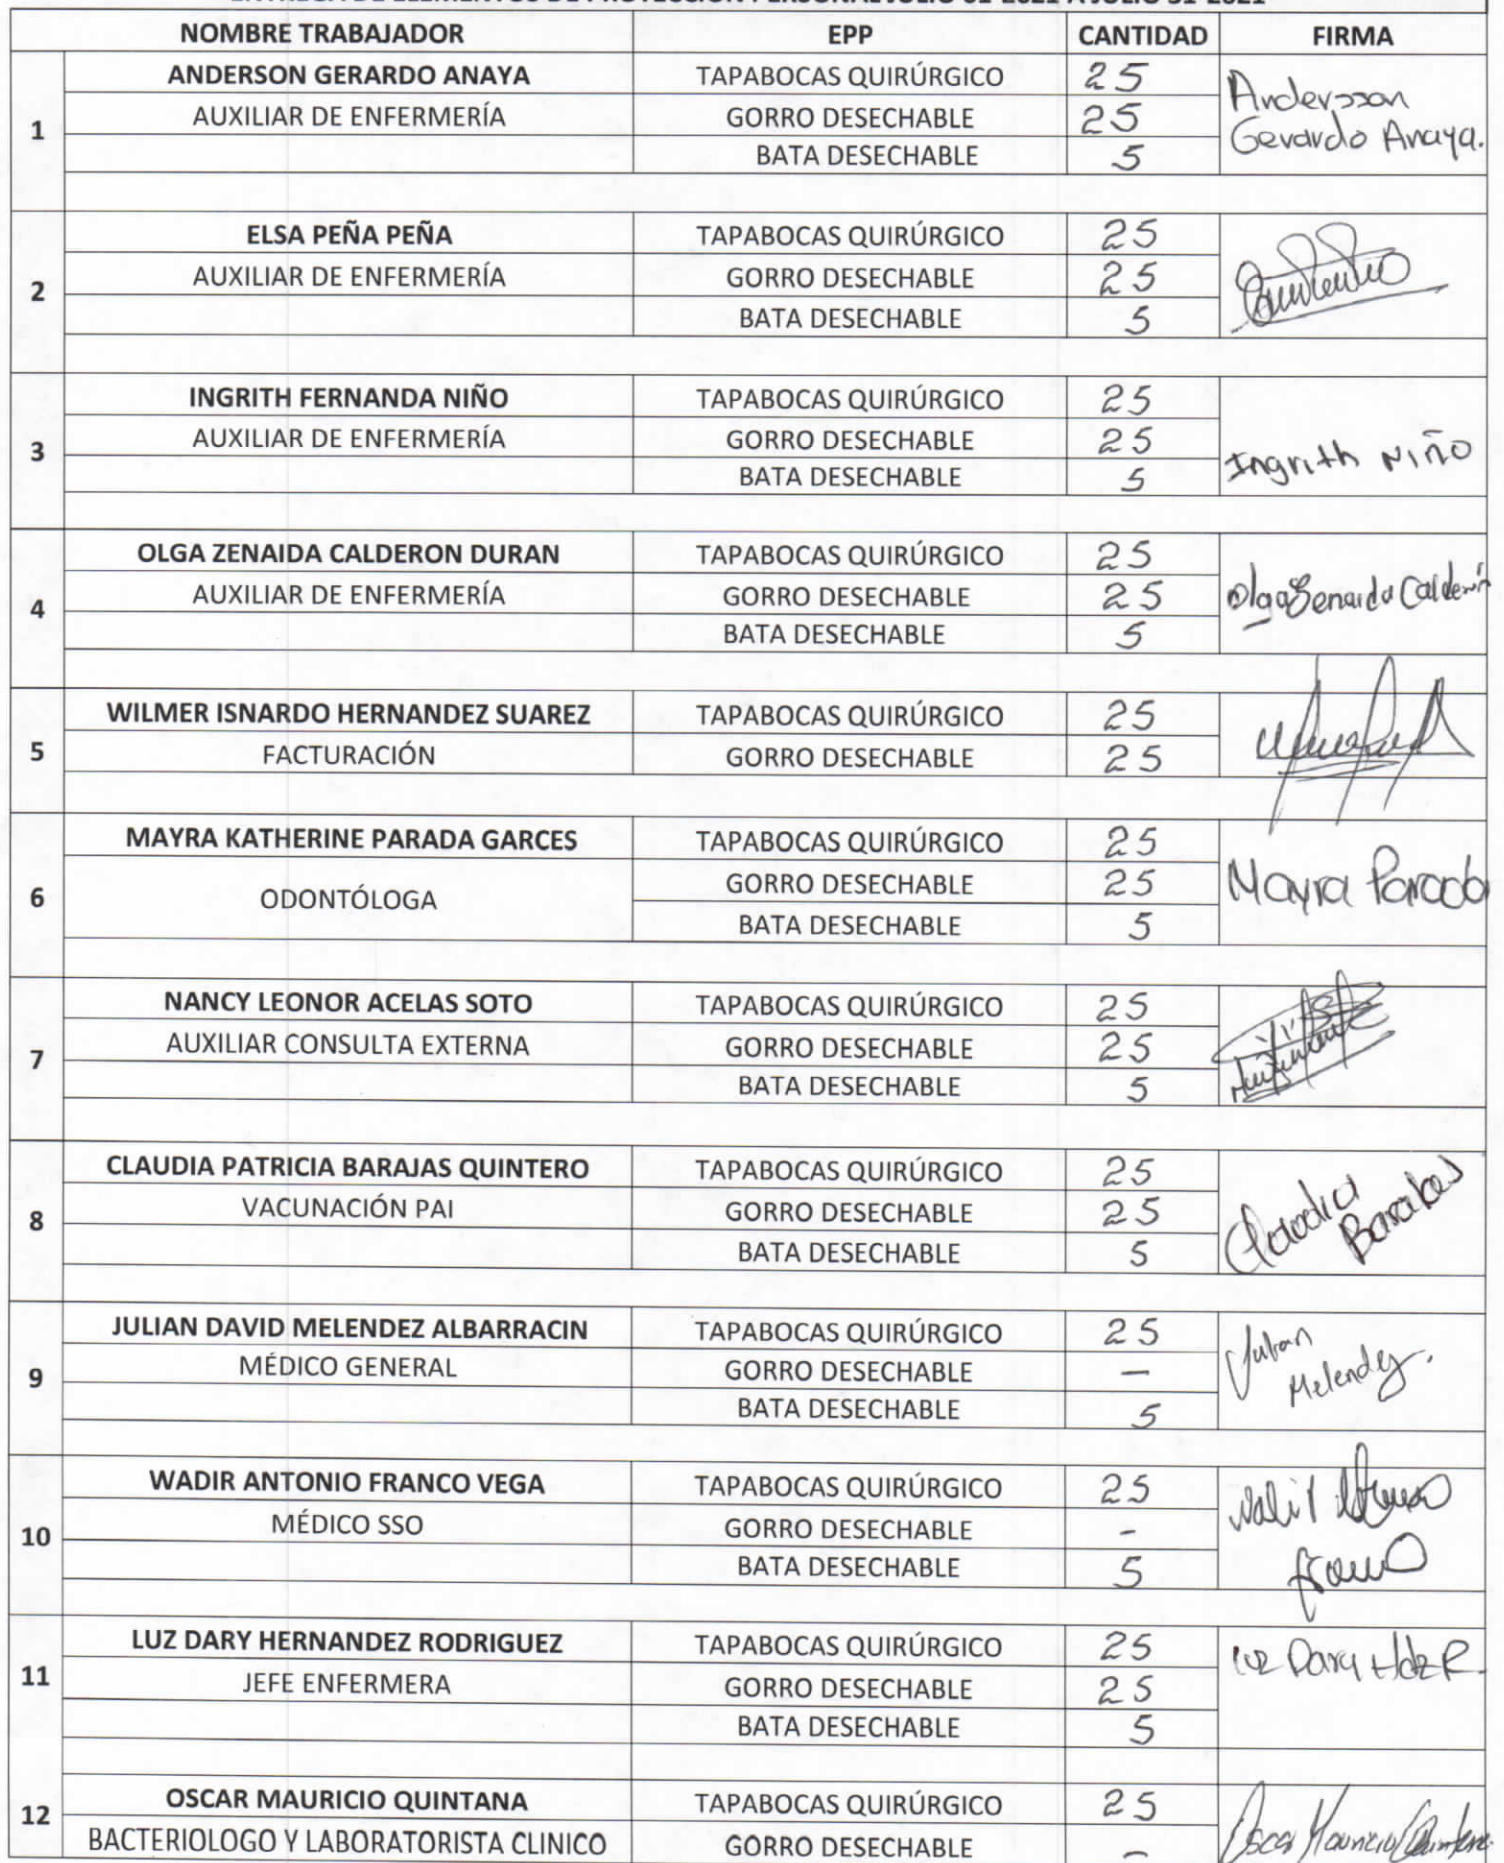 ENTREGA DE ELEMENTOS DE PROTECCION PERSONAL JULIO 01-2021 A JULIO 31-2021
NOMBRE TRABAJADOR EPP CANTIDAD FIRMA
1 ANDERSON GERARDO ANAYA TAPABOCAS QUIRÚRGICO 25 Andersson
AUXILIAR DE ENFERMERÍA GORRO DESECHABLE 25 Gerardo Anaya.
BATA DESECHABLE 5
2 ELSA PEÑA PEÑA TAPABOCAS QUIRÚRGICO 25
AUXILIAR DE ENFERMERÍA GORRO DESECHABLE 25
BATA DESECHABLE 5
3 INGRITH FERNANDA NIÑO TAPABOCAS QUIRÚRGICO 25
AUXILIAR DE ENFERMERÍA GORRO DESECHABLE 25 Ingrith Niño
BATA DESECHABLE 5
4 OLGA ZENAIDA CALDERON DURAN TAPABOCAS QUIRÚRGICO 25
AUXILIAR DE ENFERMERÍA GORRO DESECHABLE 25 Olga Senaida Calderón
BATA DESECHABLE 5
5 WILMER ISNARDO HERNANDEZ SUAREZ TAPABOCAS QUIRÚRGICO 25
FACTURACIÓN GORRO DESECHABLE 25
6 MAYRA KATHERINE PARADA GARCES TAPABOCAS QUIRÚRGICO 25
ODONTÓLOGA GORRO DESECHABLE 25 Mayra Parada
BATA DESECHABLE 5
7 NANCY LEONOR ACELAS SOTO TAPABOCAS QUIRÚRGICO 25
AUXILIAR CONSULTA EXTERNA GORRO DESECHABLE 25
BATA DESECHABLE 5
8 CLAUDIA PATRICIA BARAJAS QUINTERO TAPABOCAS QUIRÚRGICO 25 Claudia
VACUNACIÓN PAI GORRO DESECHABLE 25 Barajas
BATA DESECHABLE 5
9 JULIAN DAVID MELENDEZ ALBARRACIN TAPABOCAS QUIRÚRGICO 25 Julian
MÉDICO GENERAL GORRO DESECHABLE — Melendez.
BATA DESECHABLE 5
10 WADIR ANTONIO FRANCO VEGA TAPABOCAS QUIRÚRGICO 25
MÉDICO SSO GORRO DESECHABLE -
BATA DESECHABLE 5 Franco
11 LUZ DARY HERNANDEZ RODRIGUEZ TAPABOCAS QUIRÚRGICO 25 Luz Dary Hdz R.
JEFE ENFERMERA GORRO DESECHABLE 25
BATA DESECHABLE 5
12 OSCAR MAURICIO QUINTANA TAPABOCAS QUIRÚRGICO 25 Oscar Mauricio Quintana
BACTERIOLOGO Y LABORATORISTA CLINICO GORRO DESECHABLE —